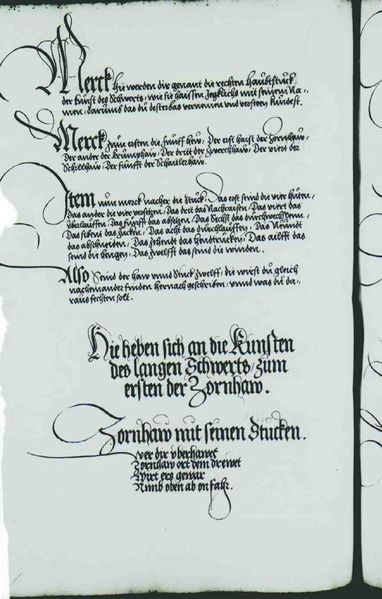 Merck Hie werden dir genant die rechten Haubtstuck
der kunst des Schwerts, wie sie haissen yegklichs mit seinem Na-
men, darumb das du desterbas vernemen und versteen kundest.
Merck zum ersten die fünff hew, Der erst haist der Zornhaw,
Der ander der Krumphaw, Der drit der Zwerchhaw, Der viert der
Schilhaw, Der fünfft der Schaitlerhaw.
Item nun merck nacher die stuck, Das erst send die vier hüten,
Das ander die vier versetzen, Das drit das Nachraisen, Das viert das
überlauffen, Das fünfft das absetzen, Das sechst das durchwechslenn,
Das sibend das zucken, Das acht das durchlauffen, Das Neündt
das abschneiden, Das zehendt das hendtrucken, Das ailfft das
send die hengen, Das zwelfft das send die winden.
Also Send der haw unnd stuck zwelff, die wirst du gleich
nacheinander finden hernach geschriben, unnd was du da-
raus fechten solt.
Hie heben sich an die Kunsten
des langen Schwerts, zum
ersten der Zornhaw.
Zornhaw mit seinen Stucken.
Wer dir überhawet
Zornhaw ort dem drewet
Wirt ers gewar
Nimb oben ab on fahr.